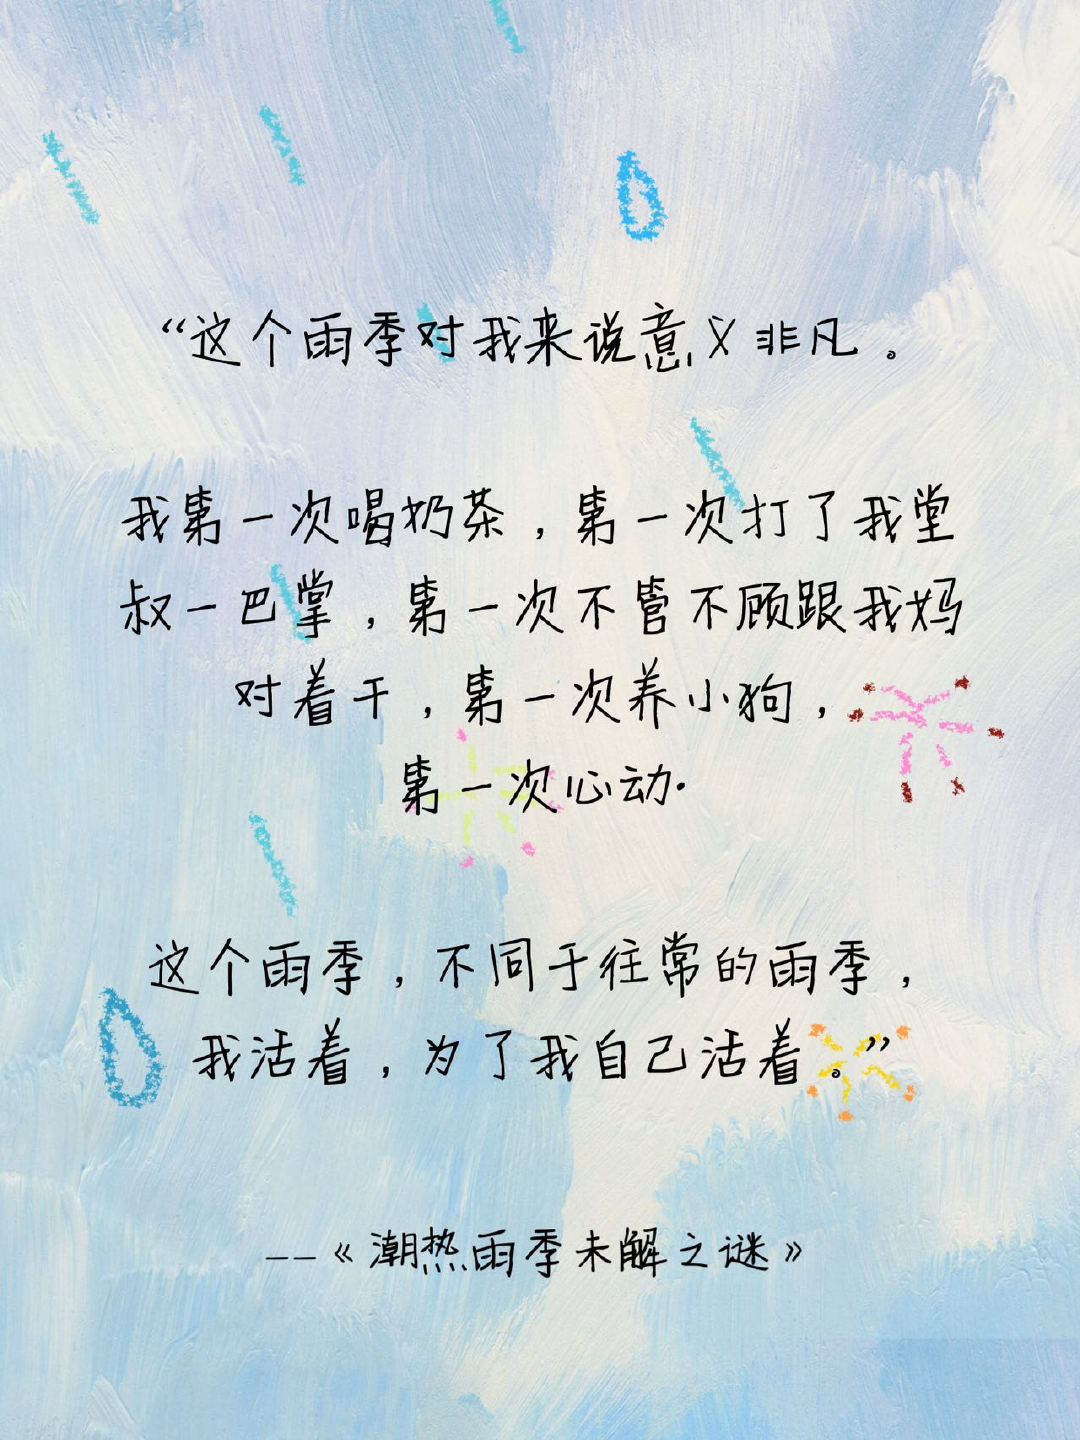 “这个雨季对我来说意义非凡。
我第一次喝奶茶，第一次打了我堂
叔一巴掌，第一次不管不顾跟我妈
对着干，第一次养小狗，
第一次心动.
这个雨季，不同于往常的雨季，
我活着，为了我自己活着。”
——《潮热雨季未解之谜》